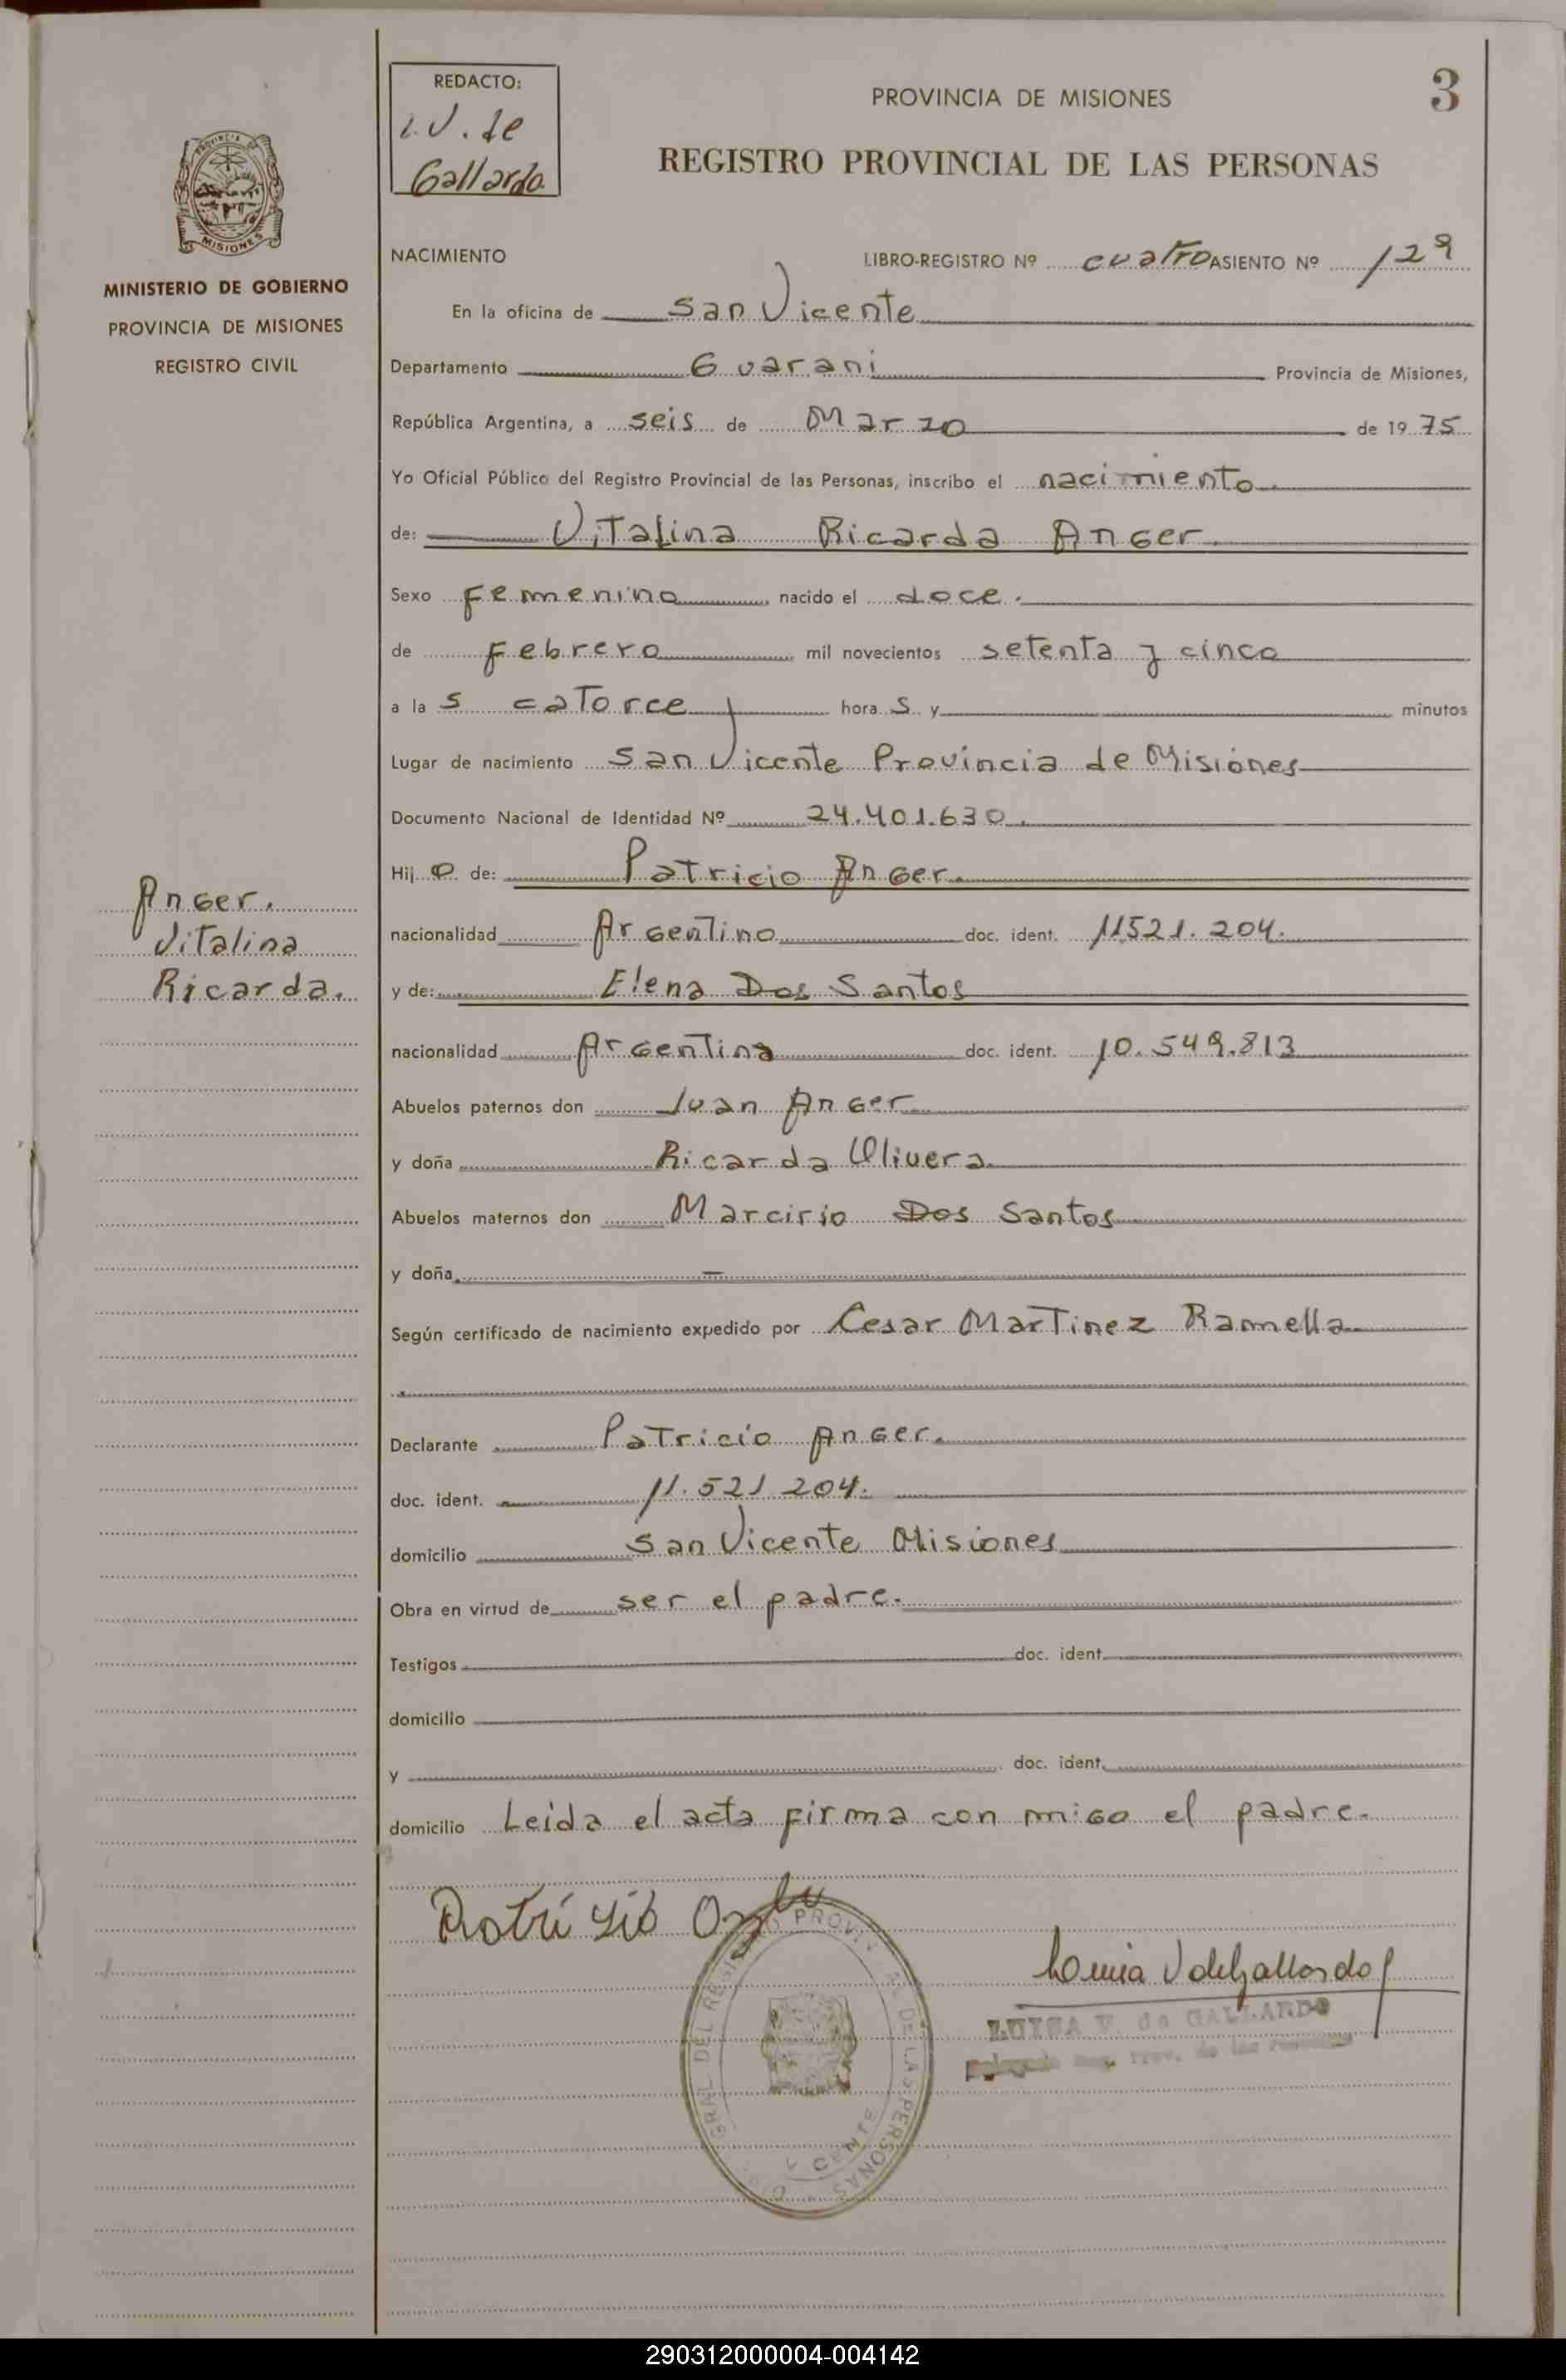 3
REDACTO:
L.V. de
Gallardo.
PROVINCIA DE MISIONES
REGISTRO PROVINCIAL DE LAS PERSONAS
PROVINCIA
MISIONES
MINISTERIO DE GOBIERNO
PROVINCIA DE MISIONES
REGISTRO CIVIL
NACIMIENTO LIBRO-REGISTRO Nº cuatro ASIENTO Nº 129
En la oficina de San Vicente
Departamento Guarani Provincia de Misiones,
República Argentina, a seis de Marzo de 1975
Yo Oficial Público del Registro Provincial de las Personas, inscribo el nacimiento
de: Vitalina Ricarda Anger.
Sexo Femenino nacido el doce.
de Febrero mil novecientos setenta y cinco
a las catorce horas y minutos
Lugar de nacimiento San Vicente Provincia de Misiones
Documento Nacional de Identidad Nº 24.401.630.
Hijo de: Patricio Anger.
nacionalidad Argentino doc. ident. 11521.204.
y de: Elena Dos Santos
nacionalidad Argentina doc. ident. 10.549.813
Abuelos paternos don Juan Anger
y doña Ricarda Olivera
Abuelos maternos don Marcirio Dos Santos
y doña —
Según certificado de nacimiento expedido por Cesar Martinez Ramella
Declarante Patricio Anger.
doc. ident. 11.521.204.
domicilio San Vicente Misiones
Obra en virtud de ser el padre.
Testigos doc. ident.
domicilio
y doc. ident.
domicilio Leida el acta firma con migo el padre.
Anger.
Vitalina
Ricarda.
LUISA V. de GALLARDO
290312000004-004142